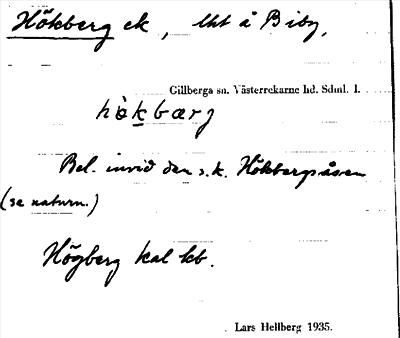 Hökberg ek, lht å Biby.
Gillberga sn. Västerrekarne hd. Sdml. 1.
hö̀kbærj
Bel. invid den s.k. Hökbergsåsen
(se naturn.)
Högberg kal kb.
Lars Hellberg 1935.